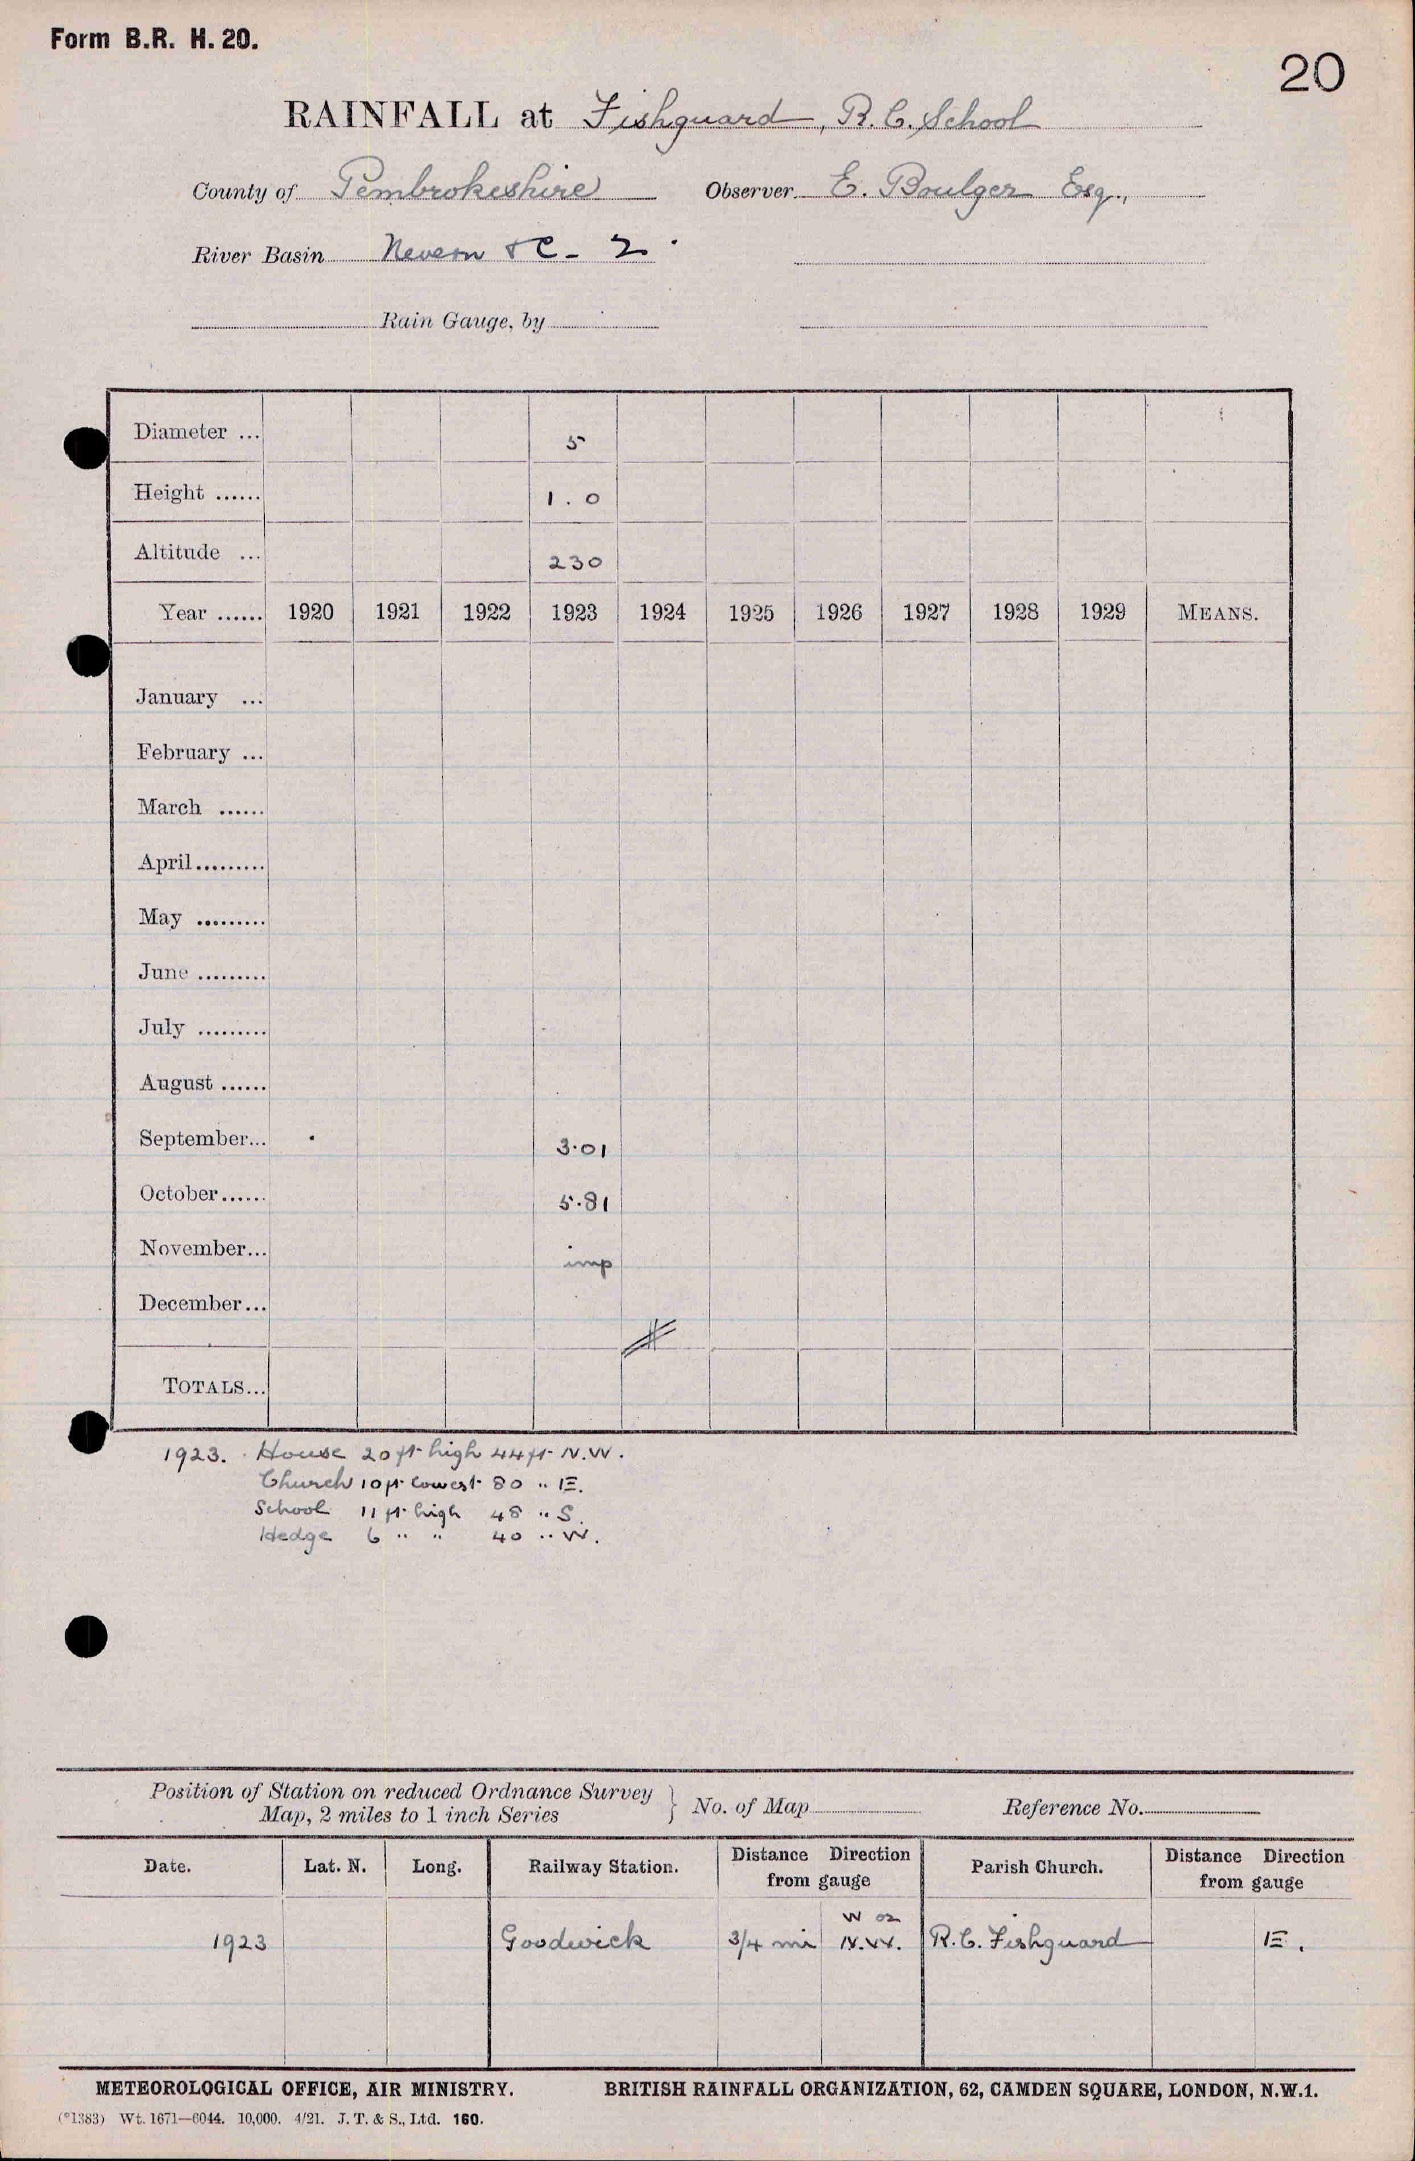 Form B.R. H. 20.
20
RAINFALL at Fishguard, R.C. School
County of Pembrokeshire Observer E. Boulger Esq.,
River Basin Nevern & C - 2
Rain Gauge, by
Diameter ... 5
Height ...... 1.0
Altitude ... 230
Year ...... 1920 1921 1922 1923 1924 1925 1926 1927 1928 1929 MEANS.
January ...
February ...
March ......
April.........
May .........
June .........
July .........
August ......
September... 3.01
October...... 5.81
November... imp
December...
TOTALS...
1923. House 20 ft high 44 ft N.W.
Church 10 ft lowest 80 " E.
School 11 ft high 48 " S.
Hedge 6 " " 40 " W.
Position of Station on reduced Ordnance Survey
Map, 2 miles to 1 inch Series } No. of Map Reference No.
Date. Lat. N. Long. Railway Station. Distance Direction from gauge Parish Church. Distance Direction from gauge
1923 Goodwick 3/4 mi W or N.W. R.C. Fishguard E.
METEOROLOGICAL OFFICE, AIR MINISTRY. BRITISH RAINFALL ORGANIZATION, 62, CAMDEN SQUARE, LONDON, N.W.1.
(*1383) Wt. 1671—6044. 10,000. 4/21. J. T. & S., Ltd. 160.